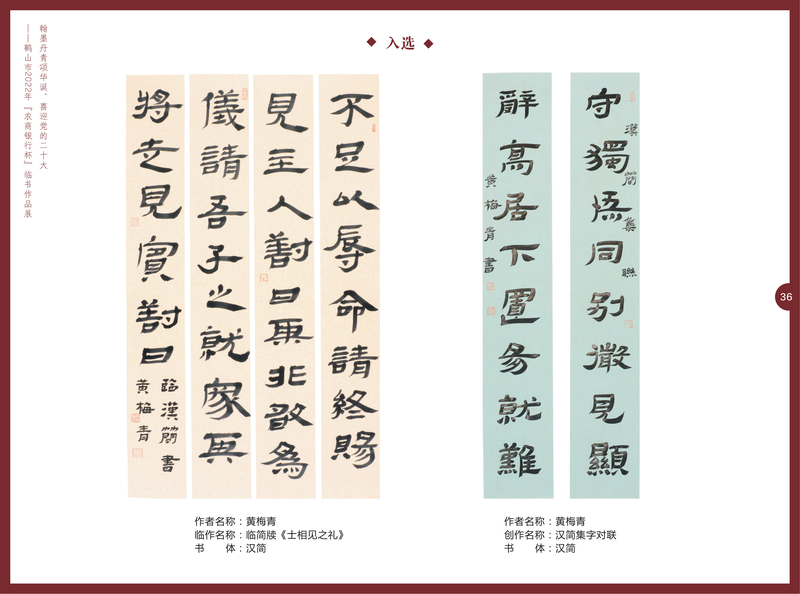 翰墨丹青颂华诞、喜迎党的二十大
——鹤山市2022年『农商银行杯』临书作品展
入选
不足以辱命請終賜
見主人對曰再非敢為
儀請吾子之就家再
將走見賓對曰
臨漢簡書
黄梅青
守獨悟同别微見顯
漢簡集聯
辭高居下置易就難
黄梅青書
作者名称：黄梅青
临作名称：临简牍《士相见之礼》
书　　体：汉简
作者名称：黄梅青
创作名称：汉简集字对联
书　　体：汉简
36